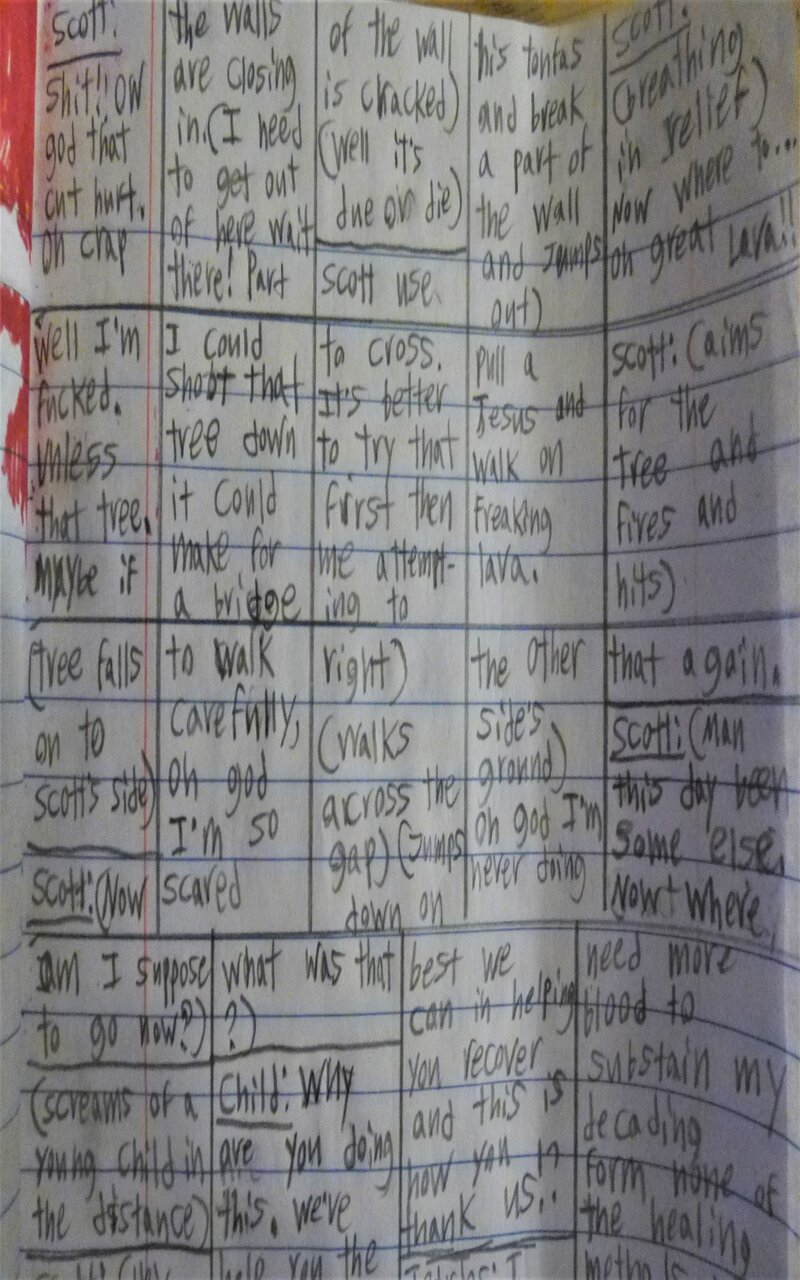 Scott:
shit!! ow
god that
cut hurt.
oh crap
the walls
are closing
in. (I need
to get out
of here wait
there! Part
of the wall
is cracked)
(well it's
due or die)
scott use
his tontas
and break
a part of
the wall
and jumps
out)
Scott:
(breathing
in relief)
Now where to...
oh great Lava!!
well I'm
fucked.
Unless
that tree.
Maybe if
I could
shoot that
tree down
it could
make for
a bridge
to cross.
It's better
to try that
first then
me attempt-
ing to
pull a
Jesus and
walk on
freaking
lava.
scott: (aims
for the
tree and
fires and
hits)
(tree falls
on to
scott's side)
Scott: (Now
to walk
carefully,
oh god
I'm so
scared
right)
(walks
across the
gap) (Jumps
down on
the other
side's
ground)
oh god I'm
never doing
that again.
Scott: (Man
this day been
some else.
Now where
am I suppose
to go now?)
(screams of a
young child in
the distance)
what was that
?)
Child: Why
are you doing
this. we've
help you the
best we
can in helping
you recover
and this is
how you
thank us..
need more
blood to
substain my
decading
form none of
the healing